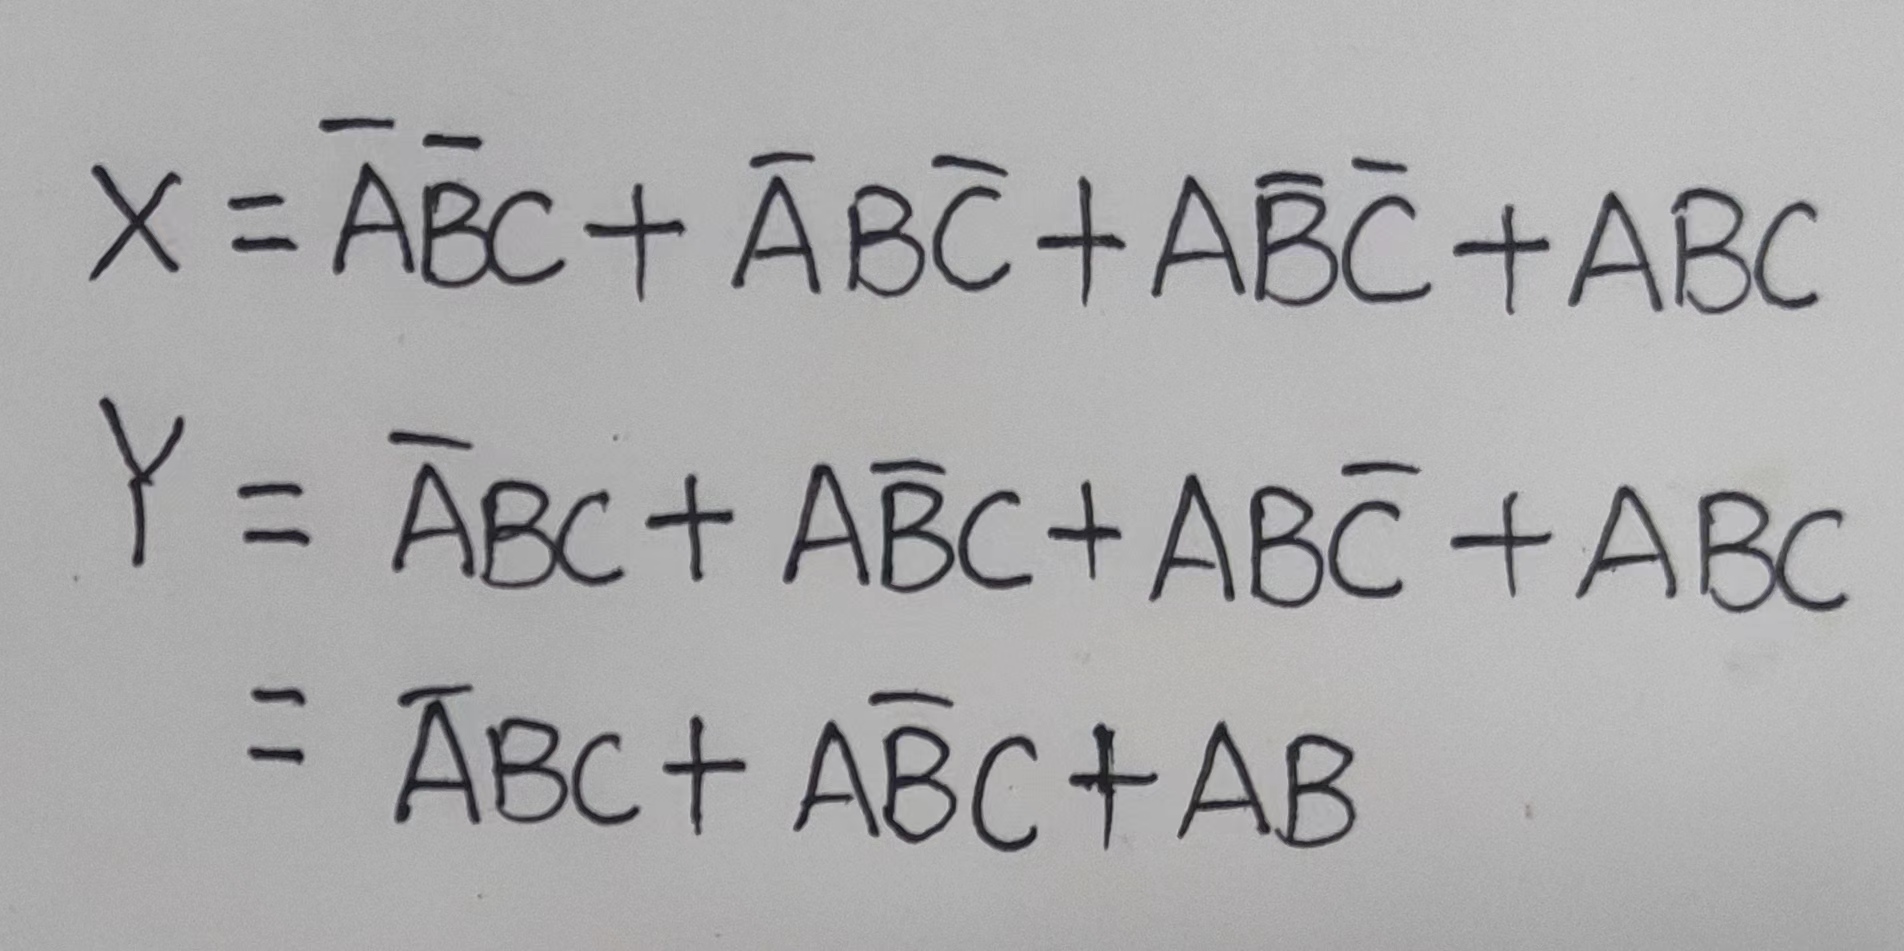 X = A̅B̅C + A̅BC̅ + AB̅C̅ + ABC
Y = A̅BC + AB̅C + ABC̅ + ABC
= A̅BC + AB̅C + AB